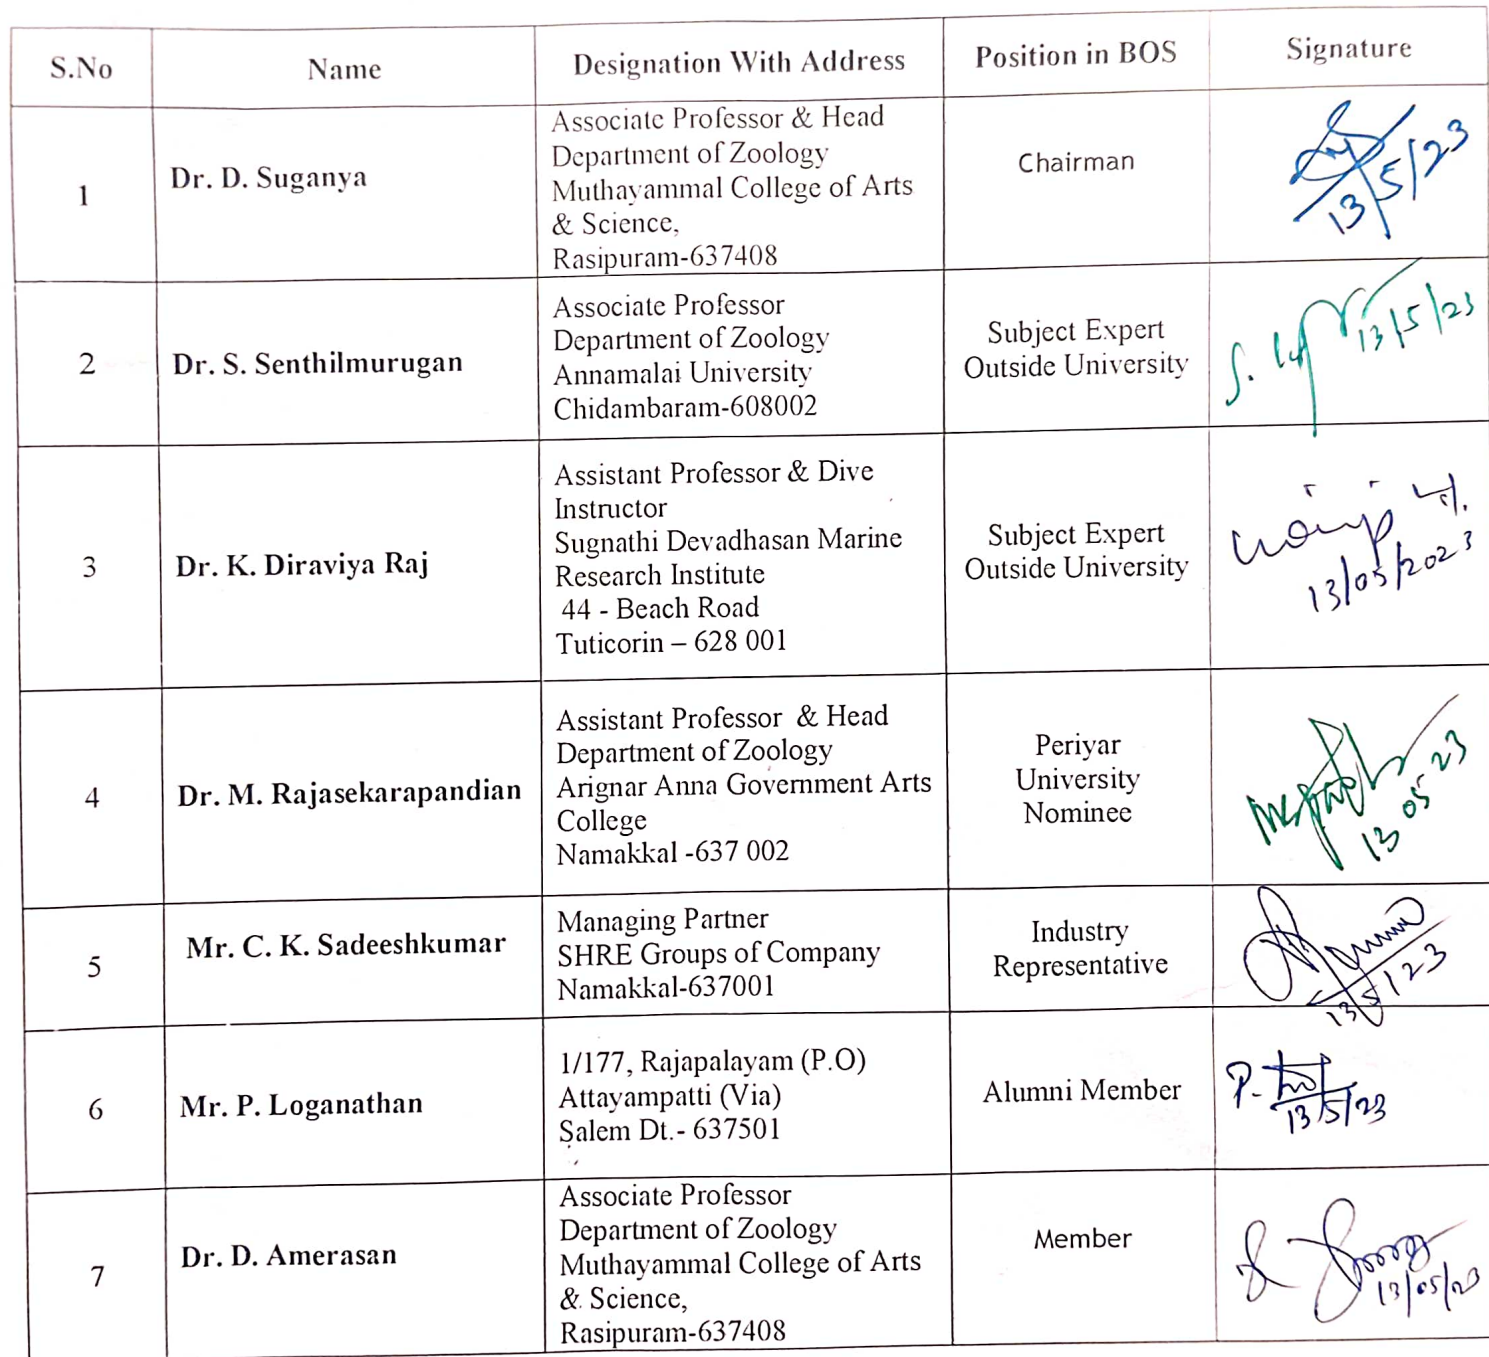 S.No Name Designation With Address Position in BOS Signature
1
Dr. D. Suganya
Associate Professor & Head
Department of Zoology
Muthayammal College of Arts
& Science,
Rasipuram-637408
Chairman
13/5/23
2
Dr. S. Senthilmurugan
Associate Professor
Department of Zoology
Annamalai University
Chidambaram-608002
Subject Expert
Outside University
S.
13/5/23
3
Dr. K. Diraviya Raj
Assistant Professor & Dive
Instructor
Sugnathi Devadhasan Marine
Research Institute
44 - Beach Road
Tuticorin – 628 001
Subject Expert
Outside University
13/05/2023
4
Dr. M. Rajasekarapandian
Assistant Professor & Head
Department of Zoology
Arignar Anna Government Arts
College
Namakkal -637 002
Periyar
University
Nominee
13 05 23
5
Mr. C. K. Sadeeshkumar
Managing Partner
SHRE Groups of Company
Namakkal-637001
Industry
Representative
13/5/23
6
Mr. P. Loganathan
1/177, Rajapalayam (P.O)
Attayampatti (Via)
Salem Dt.- 637501
Alumni Member
P.
13/5/23
7
Dr. D. Amerasan
Associate Professor
Department of Zoology
Muthayammal College of Arts
& Science,
Rasipuram-637408
Member
13/05/23